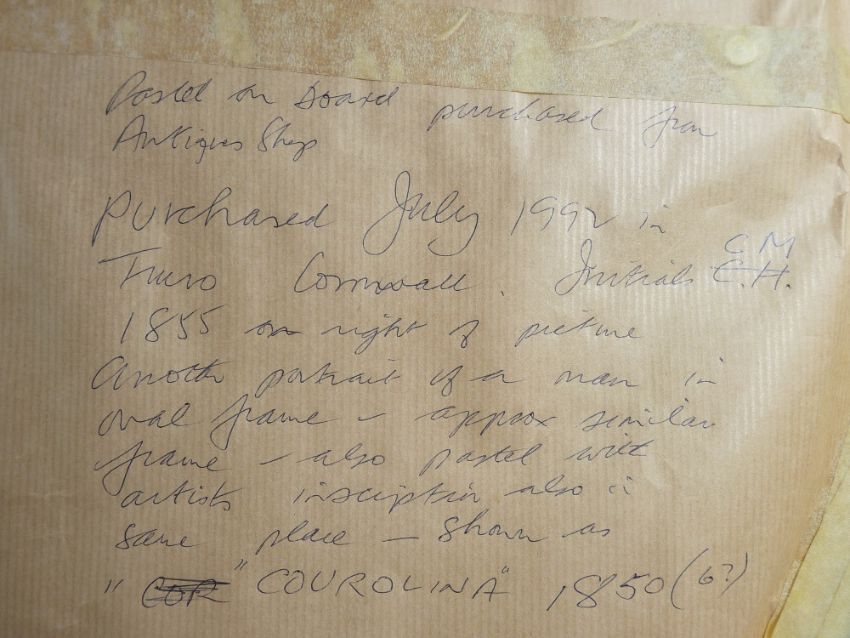 Pastel on board purchased from
Antiques Shop
Purchased July 1992 in
Truro Cornwall. Initials C M
E.H.
1855 on right of picture
Another portrait of a man in
oval frame - approx similar
frame - also pastel with
artists inscription also in
same place - shown as
" COR " COUROLINA" 1850 (6?)